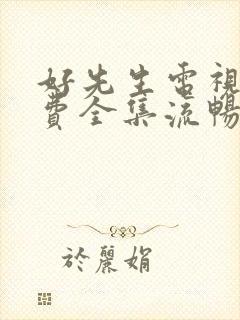 好先生電視
費全集流暢
於麗娟